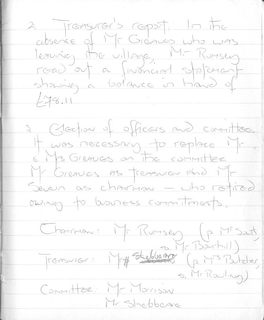 2. Treasurer's report. In the
absence of Mr Greaves who was
leaving the village, Mr Rumsey
read out a financial statement
showing a balance in hand of
£78.11
3. Election of officers and committee
It was necessary to replace Mr
& Mrs Greaves on the committee
Mr Greaves as treasurer and Mr
as chairman - who retired
owing to business commitments.
Chairman: Mr Rumsey (p.
s. Mr
Treasurer: Mr Shebbeare (p. Mrs Butcher,
s. Mr Rowling)
Committee: Mr Morrison
Mr Shebbeare